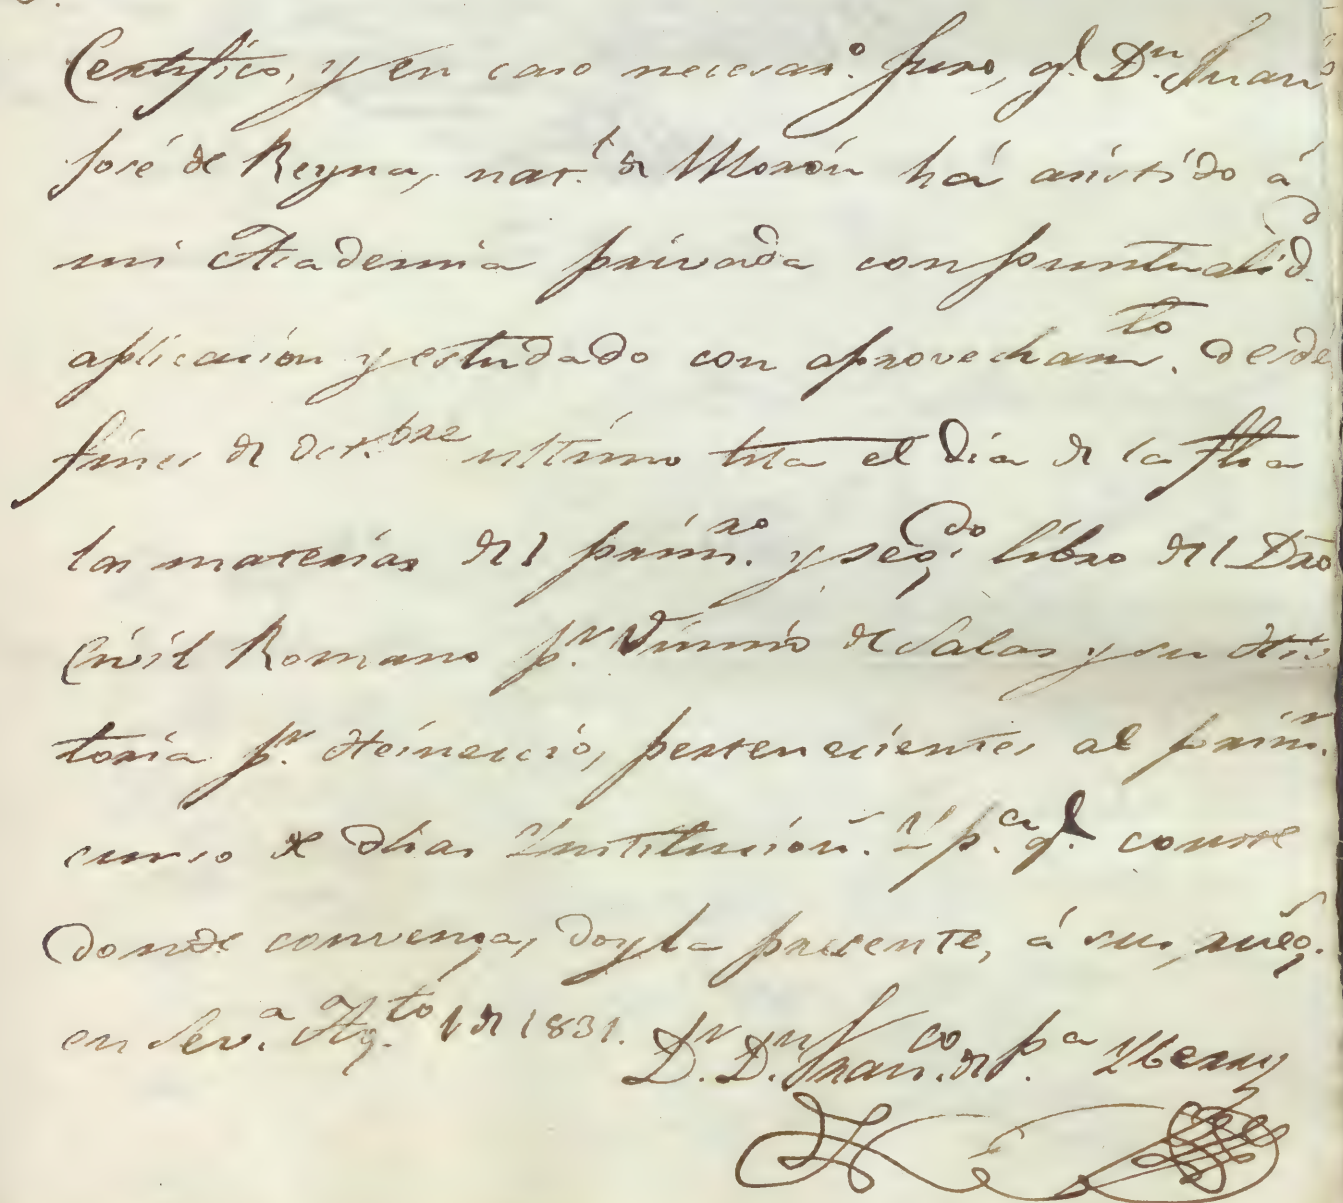 Certifico, y en caso necesar.º Juro, q.e D.n Juan
José de Reyna, nat.l de Morón há asistido á
mi Academia privada con puntualid.d
aplicación y estudiado con aprovecham.to desde
fines de Oct.bre ultimo hta el dia de la fha
las materias del prim.ro y seg.do libro del Dro
Civil Romano p.r Vinnio de Salas y su His
toria p.r Heineccio, pertenecientes al prim.r
curso de dhas Institución.s Y p.a q.e conste
donde convenga, doy la presente, á su rueg.o
en Sev.a Ag.to 1 de 1831. D.r D.n Fran.co de P.a